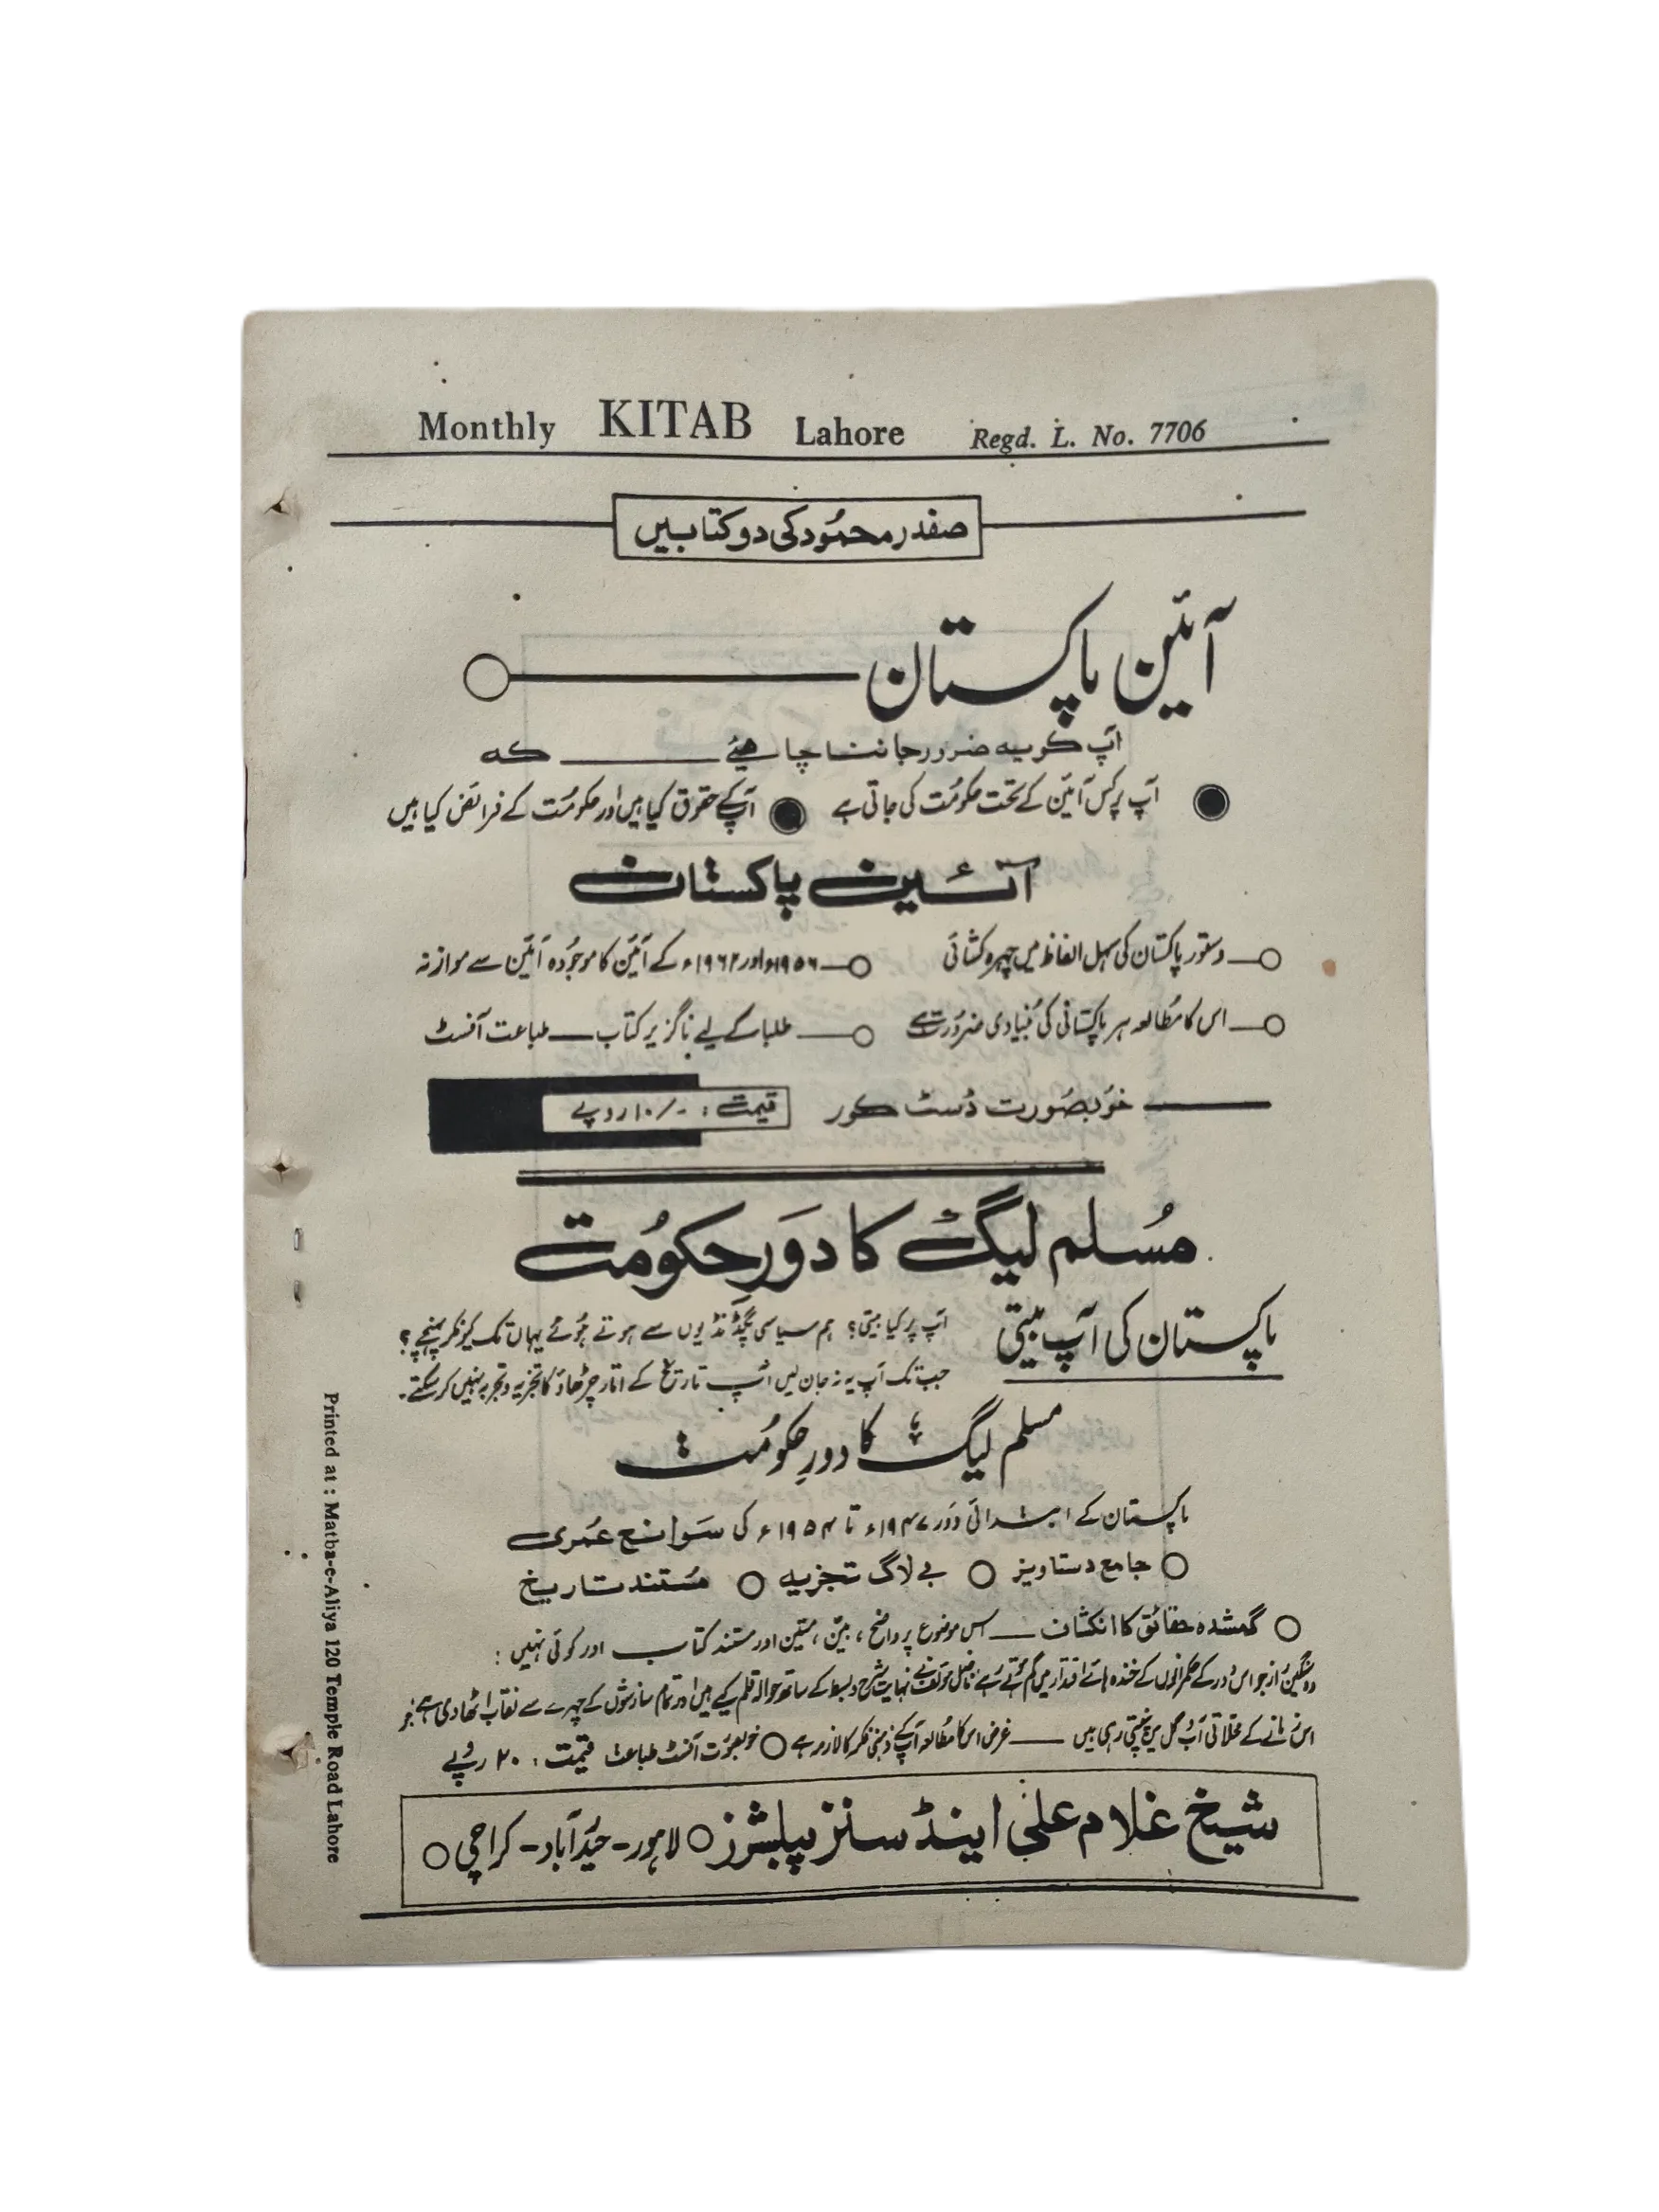 Monthly KITAB Lahore Regd. L. No. 7706
صفدر محمُود کی دو کتابیں
آئین پاکستان
آپ کو یہ ضرور جاننا چاہیئے ـــــــ کہ
آپ پر کس آئین کے تحت حکومُت کی جاتی ہے
آپ کے حقوق کیا ہیں اور حکومُت کے فرائض کیا ہیں
آئین پاکستان
دستور پاکستان کی سہل الفاظ میں چہرہ کشائی
۱۹۵۶ء اور ۱۹۶۲ء کے آئین کا موجُودہ آئین سے موازنہ
اس کا مُطالعہ ہر پاکستانی کی بُنیادی ضرورت ہے
طلبا کے لیے ناگزیر کتاب ــ طباعت آفسٹ
خوُبصوُرت ڈسٹ کور
قیمت : -/۱۰ روپے
مُسلم لیگ کا دَورِ حکوُمت
پاکستان کی آپ بیتی
آپ پر کیا بیتی؟ ہم سیاسی پگڈنڈیوں سے ہوتے ہُوئے یہاں تک کیونکر پہنچے؟
جب تک آپ یہ نہ جان لیں آپ تاریخ کے اتار چڑھاؤ کا تجزیہ و تجربہ نہیں کر سکتے۔
مسلم لیگ کا دورِ حکوُمت
پاکستان کے ابتدائی دَور ۱۹۴۷ء تا ۱۹۵۴ء کی سَوانح عُمری
جامع دستاویز ○ بے لاگ تجزیہ ○ مُستند تاریخ
گمشدہ حقائق کا انکشاف ــ اس موضوع پر واضح، بیّن، متین اور مستند کتاب اور کوئی نہیں :
وہ سنگین راز جو اس دَور کے حکمرانوں کے خندہ ہائے اقتدار میں گم ہوتے رہے فاضل مؤلف نے نہایت شرح و بسط کے ساتھ حوالہ قلم کیے ہیں اور تمام سازشوں کے چہرے سے نقاب اٹھا دی ہے جو
اس زمانے کے محلاتی آب و گل میں پنپتی رہی ہیں ــ غرض اس کا مُطالعہ آپ کے ذہنی فکر کا لازمہ ہے ○ خوبصوُرت آفسٹ طباعت قیمت : ۲۰ روپے
شیخ غلام علی اینڈ سنز پبلشرز ○ لاہور - حیدُرآباد - کراچی ○
Printed at : Matba-e-Aliya 120 Temple Road Lahore